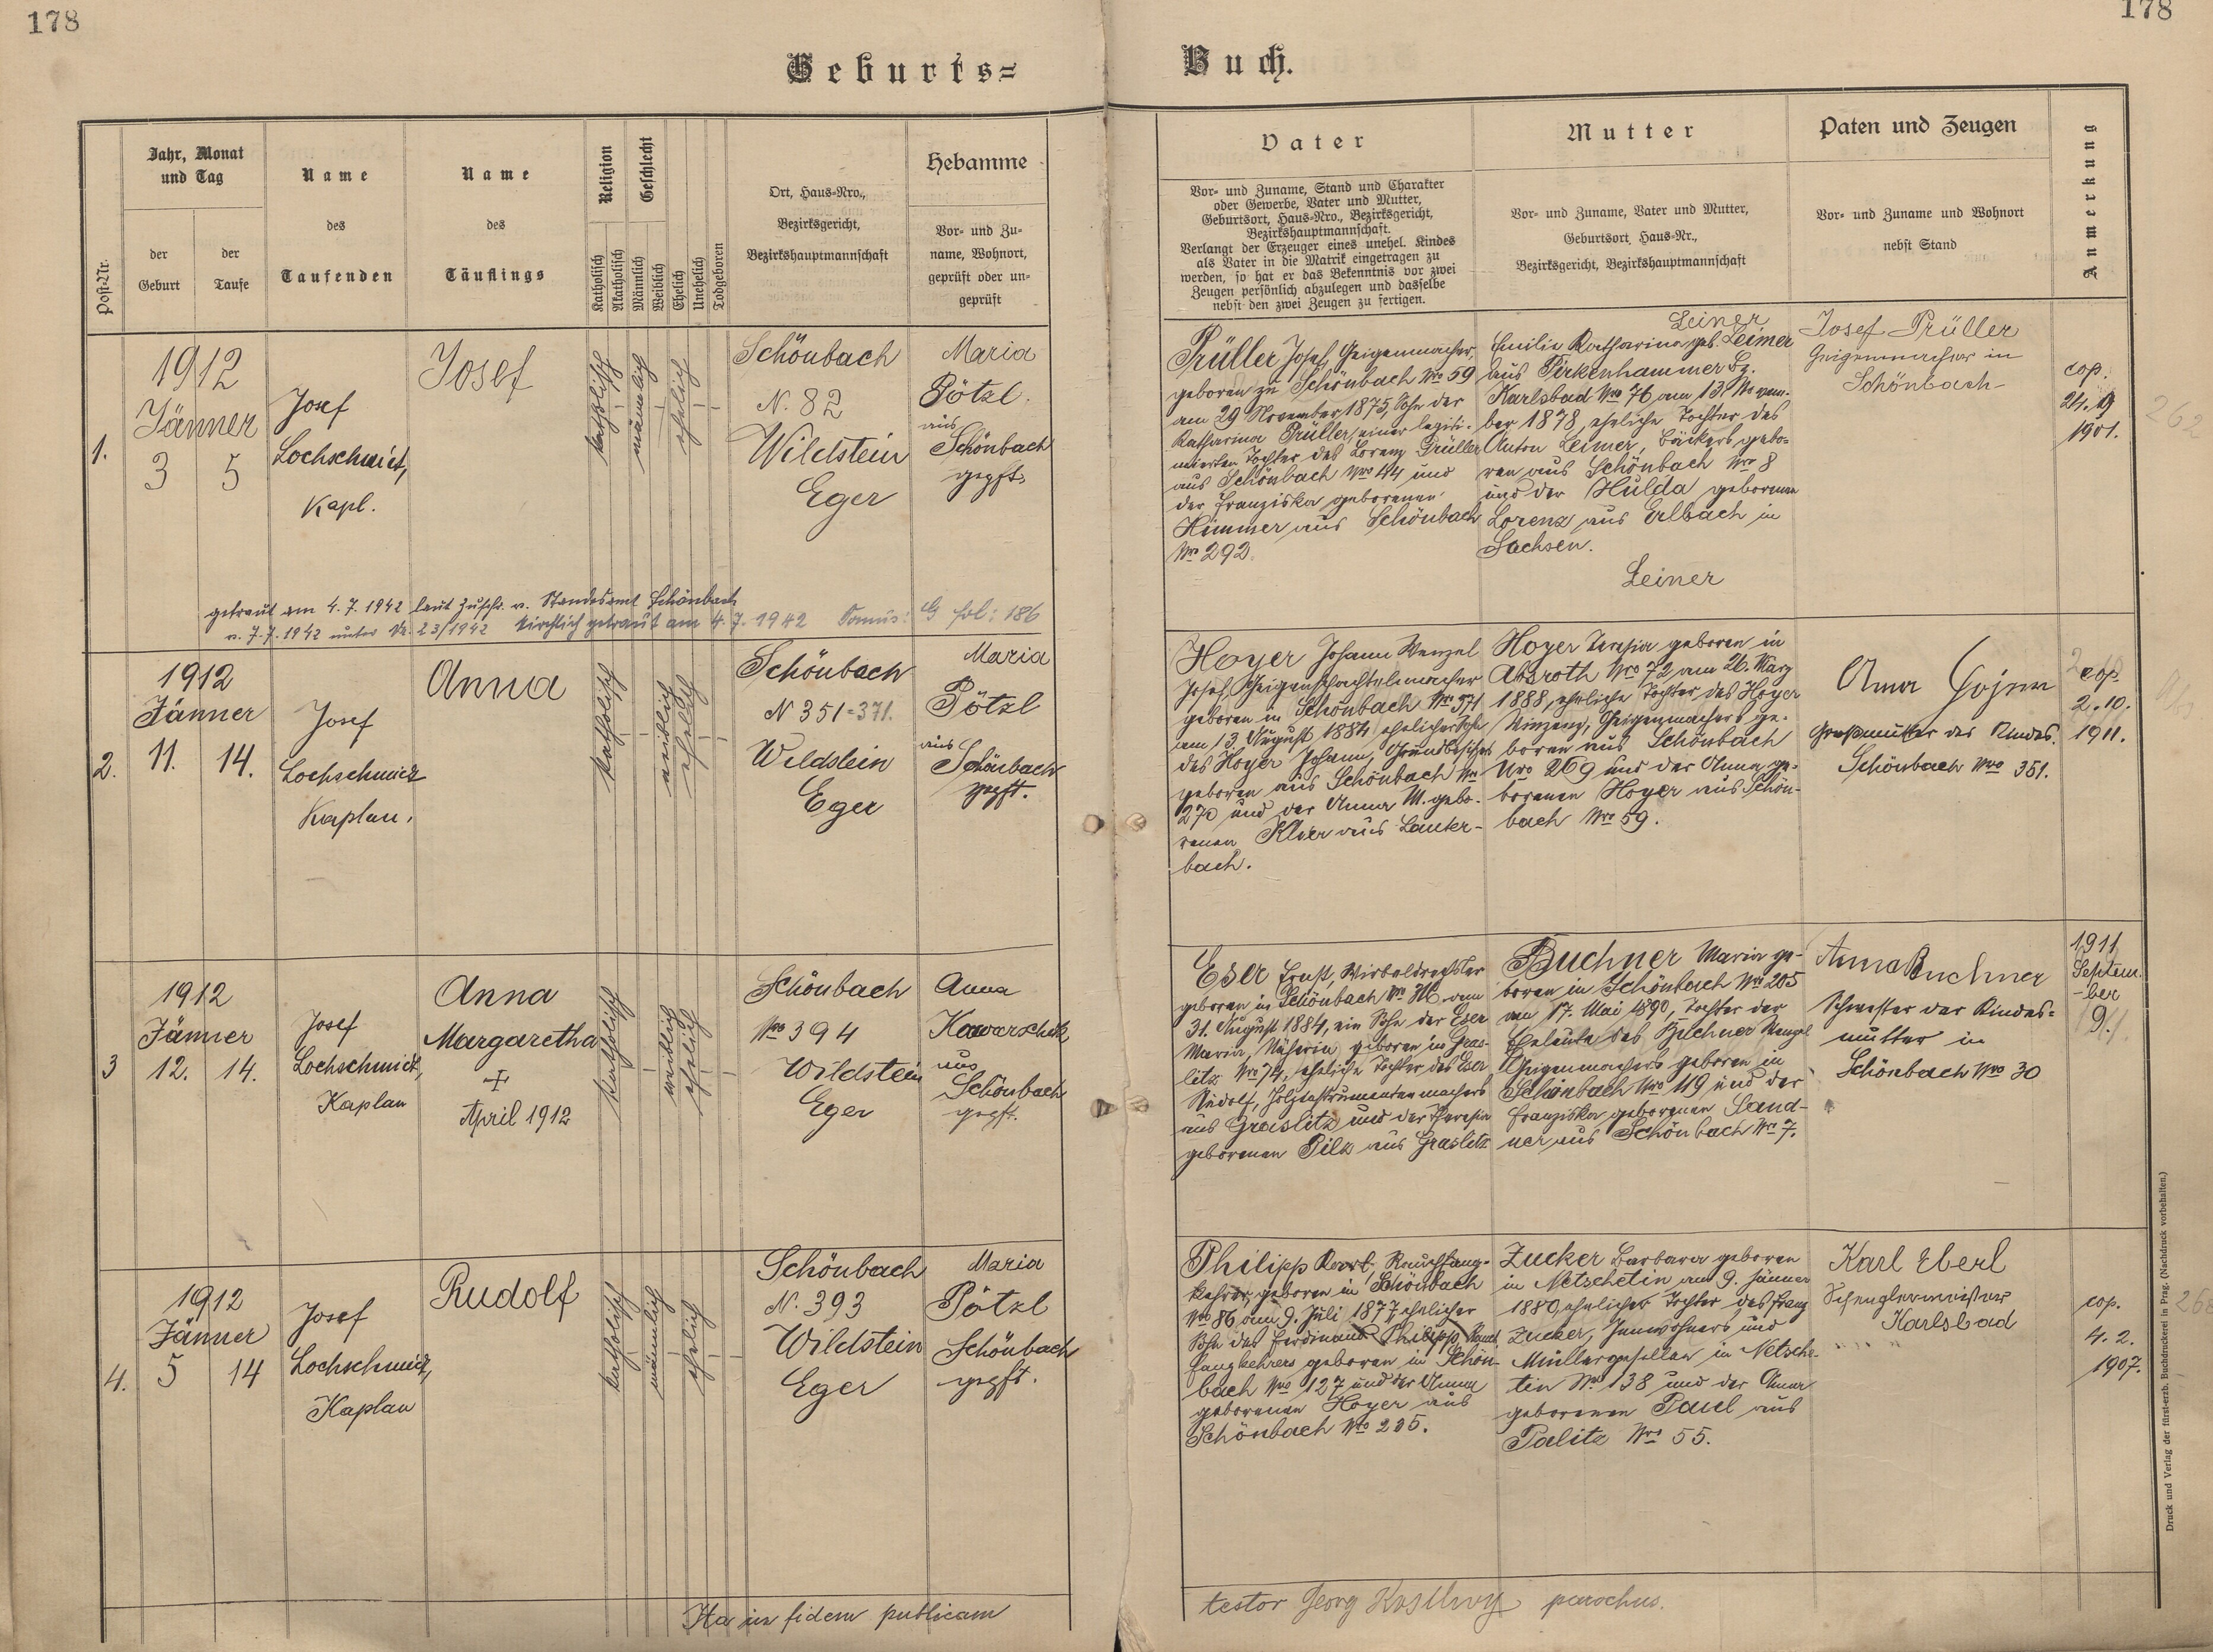 178
178
Geburts=
Buch.
Post-Nr.
Jahr, Monat
und Tag
der
Geburt
der
Taufe
Name
des
Taufenden
Name
des
Täuflings
Religion
Geschlecht
Katholisch
Akatholisch
Männlich
Weiblich
Ehelich
Unehelich
Todgeboren
Ort, Haus=Nro.,
Bezirksgericht,
Bezirkshauptmannschaft
Hebamme
Vor= und Zu=
name, Wohnort,
geprüft oder un=
geprüft
Vater
Vor= und Zuname, Stand und Charakter
oder Gewerbe, Vater und Mutter,
Geburtsort, Haus=Nro., Bezirksgericht,
Bezirkshauptmannschaft.
Verlangt der Erzeuger eines unehel. Kindes
als Vater in die Matrik eingetragen zu
werden, so hat er das Bekenntnis vor zwei
Zeugen persönlich abzulegen und dasselbe
nebst den zwei Zeugen zu fertigen.
Mutter
Vor= und Zuname, Vater und Mutter,
Geburtsort, Haus=Nr.,
Bezirksgericht, Bezirkshauptmannschaft
Paten und Zeugen
Vor= und Zuname und Wohnort
nebst Stand
Anmerkung
1.
1912
Jänner
3 5
Josef
Lochschmidt,
Kapl.
Josef
katholisch
männlich
ehelich
Schönbach
N. 82
Wildstein
Eger
Maria
Pötzl.
aus
Schönbach
gepft.
Prüller Josef, Geigenmacher,
geboren zu Schönbach Nro 59
am 29 November 1875, Sohn der
Katharina Prüller, einer legiti-
mierten Tochter des Lorenz Prüller
aus Schönbach Nro 44 und
der Franziska geborenen
Himmer aus Schönbach
Nro 292.
Leiner
Emilie Katharina geb. Leimer
aus Pirkenhammer Bz.
Karlsbad Nro 76 am 13. Novem-
ber 1878, eheliche Tochter des
Anton Leimer, Bäckers gebo-
ren aus Schönbach Nro 8
und der Hulda geborenen
Lorenz aus Erlbach in
Sachsen.
Leiner
Josef Prüller
Geigenmacher in
Schönbach
cop.
24. 9
1901.
262
getraut am 4. 7. 1942 laut Zuschr. v. Standesamt Schönbach
v. 7. 7. 1942 unter Nr. 23/1942 kirchlich getraut am 4. 7. 1942 Tomus: G fol: 186
2.
1912
Jänner
11. 14.
Josef
Lochschmidt
Kaplan.
Anna
katholisch
weiblich
ehelich
Schönbach
N 351=371.
Wildstein
Eger
Maria
Pötzl
aus
Schönbach
gepft.
Hoyer Johann Wenzel
Josef, Geigenschachtelmacher
geboren in Schönbach Nro 371
am 13. August 1884 ehelicher Sohn
des Hoyer Johann, Grundbesitzers
geboren aus Schönbach Nro
270 und der Anna M. gebo-
renen Klier aus Lauter-
bach.
Hoyer Theresia geboren in
Absroth Nro 72 am 26. März
1888, eheliche Tochter des Hoyer
Vinzenz, Geigenmachers ge-
boren aus Schönbach
Nro 269 und der Anna ge-
borenen Hoyer aus Schön-
bach Nro 59.
Anna Hoyer
Großmutter des Kindes.
Schönbach Nro 351.
cop
2. 10.
1911.
3
1912
Jänner
12. 14.
Josef
Lochschmidt,
Kaplan
Anna
Margaretha
+
April 1912
katholisch
weiblich
ehelich
Schönbach
Nro 394
Wildstein
Eger
Anna
Kawarschik
aus
Schönbach
gepft.
Eser Ernst, Wirbeldrechsler
geboren in Schönbach Nro 316 am
31. August 1884, ein Sohn der Eser
Maria, Näherin geboren in Gras-
litz Nro 74, eheliche Tochter des Eser
Rudolf, Holzinstrumentenmachers
aus Graslitz und der Theresia
geborenen Pilz aus Graslitz
Buchner Maria ge-
boren in Schönbach Nro 205
am 17. Mai 1890, Tochter der
Eheleute des Buchner Wenzel
Geigenmachers geboren in
Schönbach Nro 119 und der
Franziska geborenen Sand-
ner aus Schönbach Nro 7.
Anna Buchner
Schwester der Kindes=
mutter in
Schönbach Nro 30
1911
Septem
-ber
9.
4.
1912
Jänner
5 14
Josef
Lochschmidt,
Kaplan
Rudolf
katholisch
männlich
ehelich
Schönbach
N. 393
Wildstein
Eger
Maria
Pötzl
Schönbach
gepft.
Philipp Karl, Rauchfang-
kehrer, geboren in Schönbach
Nro 86 am 9. Juli 1877 ehelicher
Sohn des Ferdinand Philipp, Rauch
fangkehrers geboren in Schön-
bach Nro 127 und der Anna
geborenen Hoyer aus
Schönbach Nro 205.
Zucker Barbara geboren
in Netschetin am 9. Jänner
1880, eheliche Tochter des Franz
Zucker, Inwohners und
Müllergesellen in Netsche-
tin Nro 138 und der Anna
geborenen Paul aus
Palitz Nro 55.
Karl Eberl
Spenglermeister
Karlsbad
cop.
4. 2.
1907.
268
Ita in fidem publicam
testor Georg parochus.
Druck und Verlag der fürst-erzb. Buchdruckerei in Prag. (Nachdruck vorbehalten.)